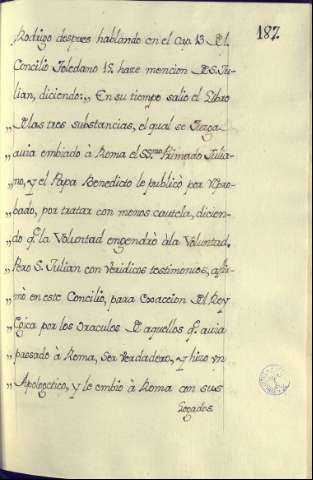 187.
Rodrigo despues hablando en el Cap. 13. Del
Concilio Toledano 15. haze mencion De S. Ju-
lian, diciendo: „ En su tiempo saliò el Libro
„ De las tres substancias, el qual se Juzga
„ avia embiado à Roma el S.mo Primado Julia-
„ no, y el Papa Benedicto le publicò por repro-
„ bado, por tratar con menos cautela, dicien-
„ do q̃ la Voluntad engendrò àla Voluntad.
„ Pero S. Julian con veridicos testimonios, afir-
„ mò en este Concilio, para Exaccion Del Rey
„ Egica por los Oraculos De aquellos q̃ avia
„ passado à Roma, ser verdadero, y hizo vn
„ Apologetico, y le embiò à Roma con sus
Legados